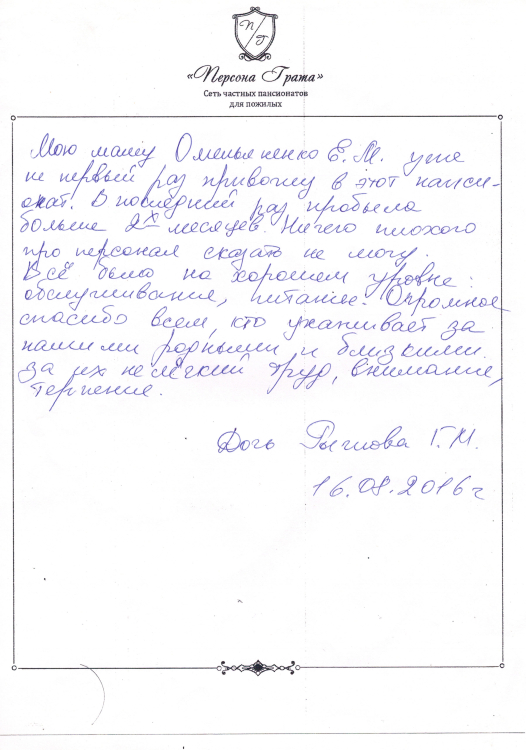 П/Г
«Персона Грата»
Сеть частных пансионатов
для пожилых
Мою маму Омельяненко Е.М. уже
не первый раз привожу в этот панси-
онат. В последний раз пробыла
больше 2х месяцев. Ничего плохого
про персонал сказать не могу.
Всё было на хорошем уровне:
обслуживание, питание. Огромное
спасибо всем, кто ухаживает за
нашими родными и близкими.
за их нелёгкий труд, внимание,
терпение.
Дочь Г.М.
16.08.2016г